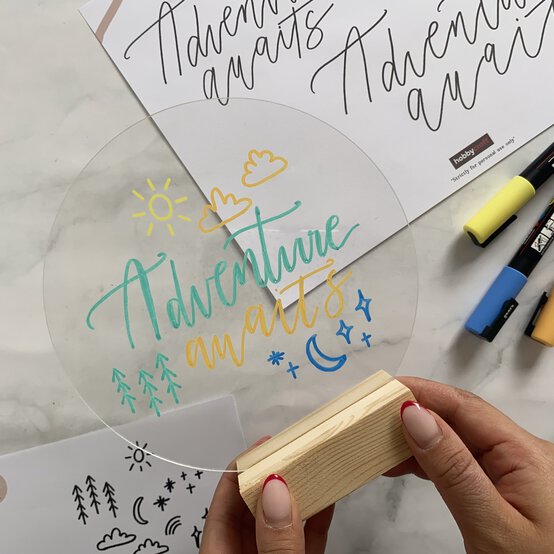 Adventure
awaits
Adventure
awaits
hobbycraft
"Strictly for personal use only"
Adventure
awaits